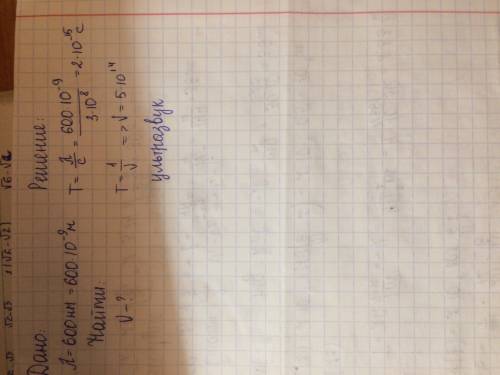 Дано:
λ = 600 нм = 600·10⁻⁹ м
Найти:
ν - ?
Решение:
T = λ/c = 600·10⁻⁹/3·10⁸ = 2·10⁻¹⁵ c
T = 1/ν => ν = 5·10¹⁴
ультразвук